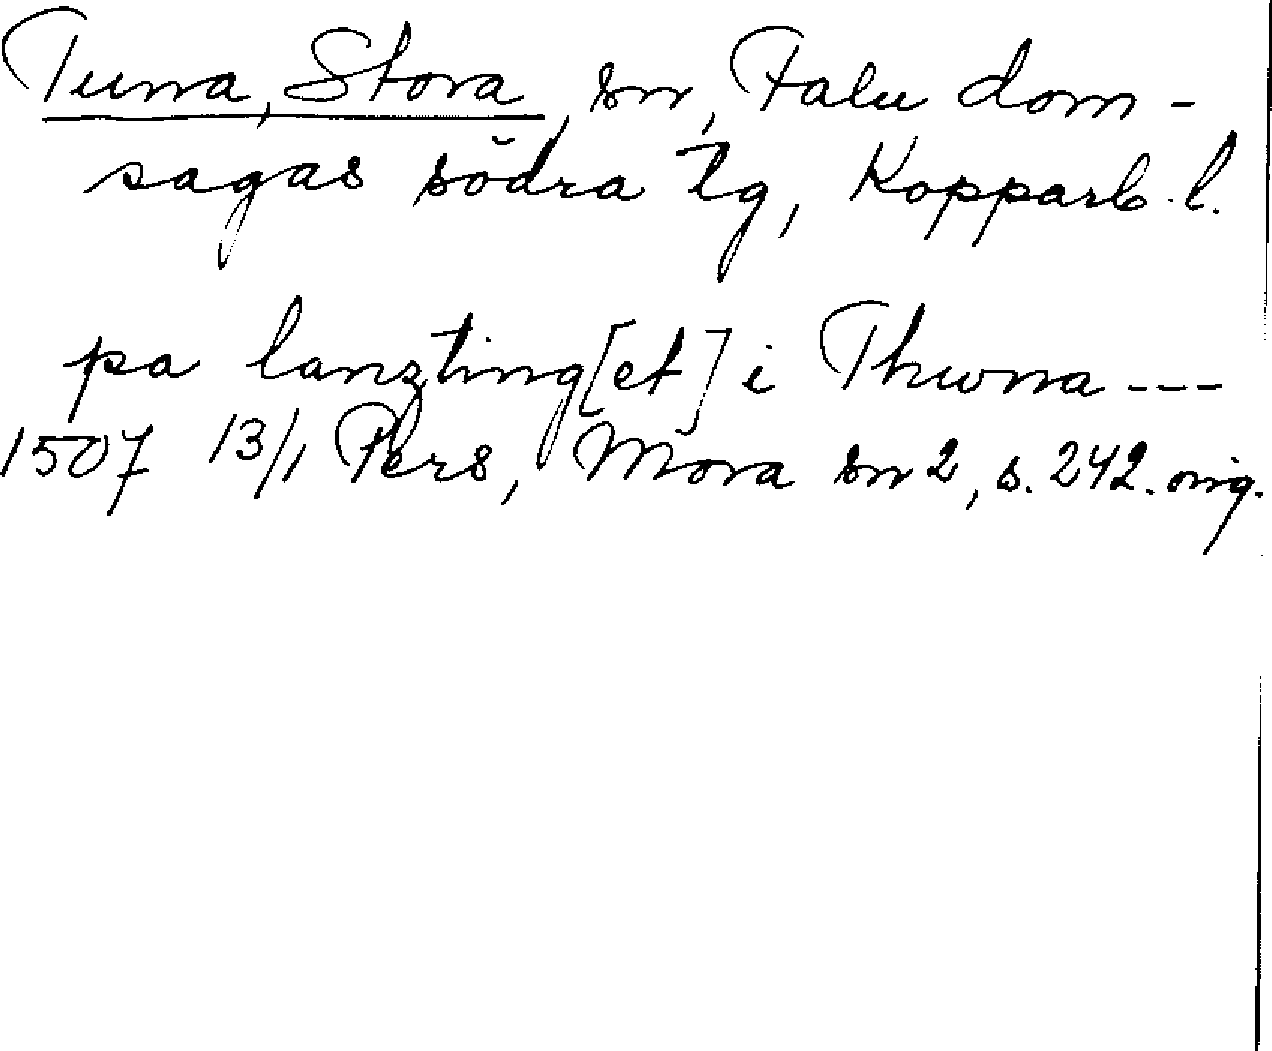 Tuna, Stora, sn, Falu dom-
sagas södra tg, Kopparb. l.
pa lanzting[et] i Thwna ---
1507 13/1 Pers, Mora sn 2, s. 242. orig.